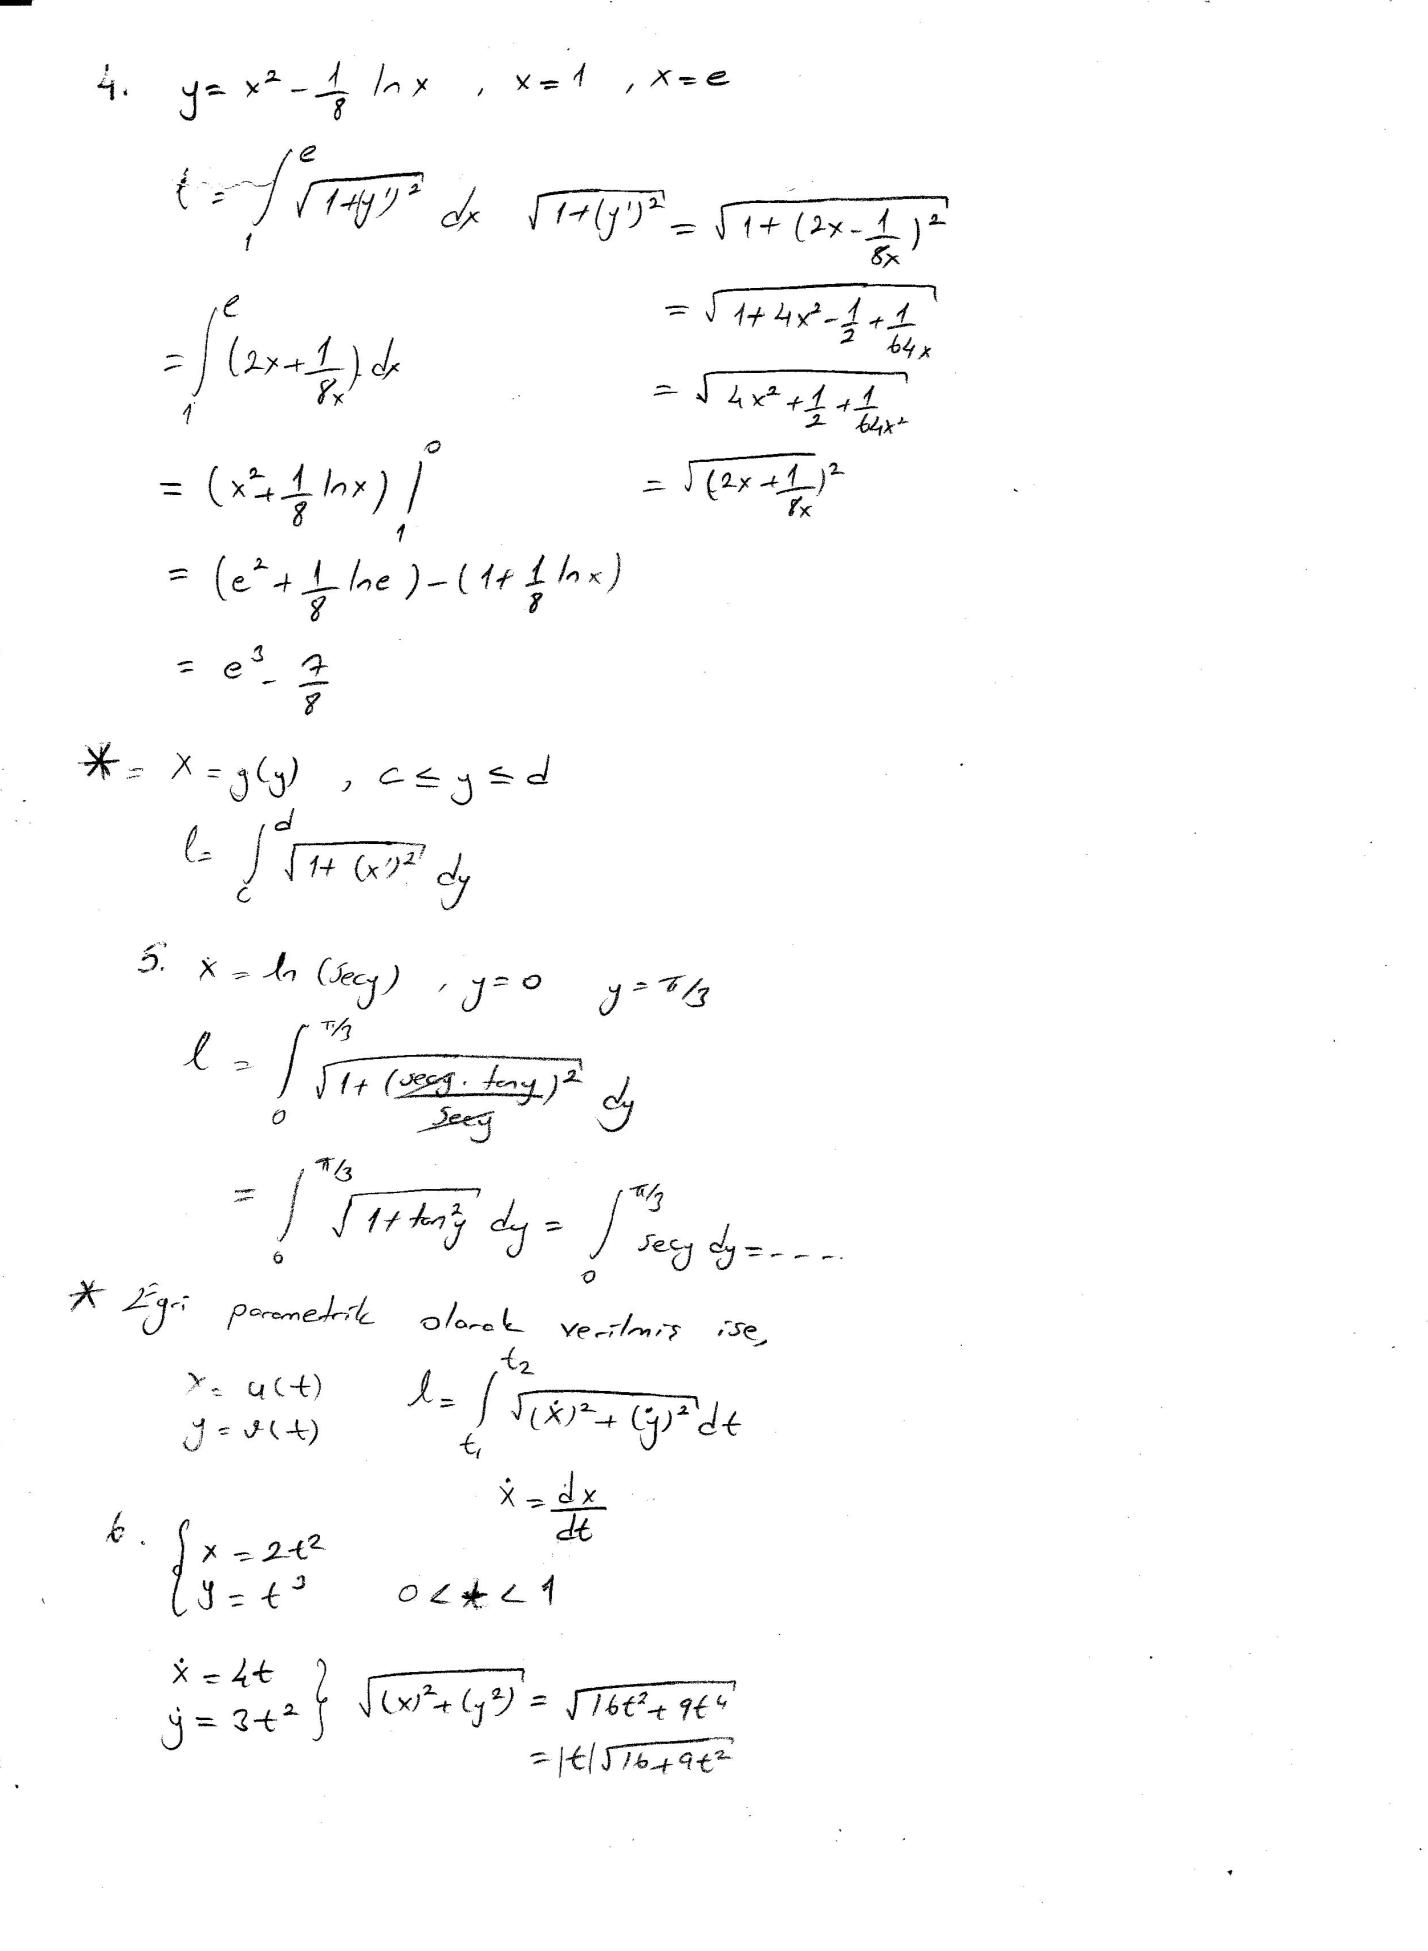 4. y = x² - 1/8 ln x , x = 1 , x = e
l = ∫₁ᵉ √(1+(y')²) dx √(1+(y')²) = √(1 + (2x - 1/8x)²)
= √(1 + 4x² - 1/2 + 1/64x)
= ∫₁ᵉ (2x + 1/8x) dx
= √(4x² + 1/2 + 1/64x²)
= (x² + 1/8 ln x) |₁⁰ = √((2x + 1/8x)²)
= (e² + 1/8 lne) - (1 + 1/8 ln x)
= e³ - 7/8
* = x = g(y) , c ≤ y ≤ d
l = ∫_c^d √(1 + (x')²) dy
5. x = ln (secy) , y = 0 y = π/3
l = ∫₀^(π/3) √(1 + (secy . tany / secy)²) dy
= ∫₀^(π/3) √(1 + tan²y) dy = ∫₀^(π/3) secy dy = ....
* Eğri parametrik olarak verilmiş ise,
x = u(t) l = ∫_t₁^t₂ √((ẋ)² + (ẏ)²) dt
y = v(t)
ẋ = dx/dt
6. { x = 2t²
y = t³ 0 < t < 1
ẋ = 4t
ẏ = 3t² } √((x)² + (y²)) = √(16t² + 9t⁴)
= |t| √(16 + 9t²)